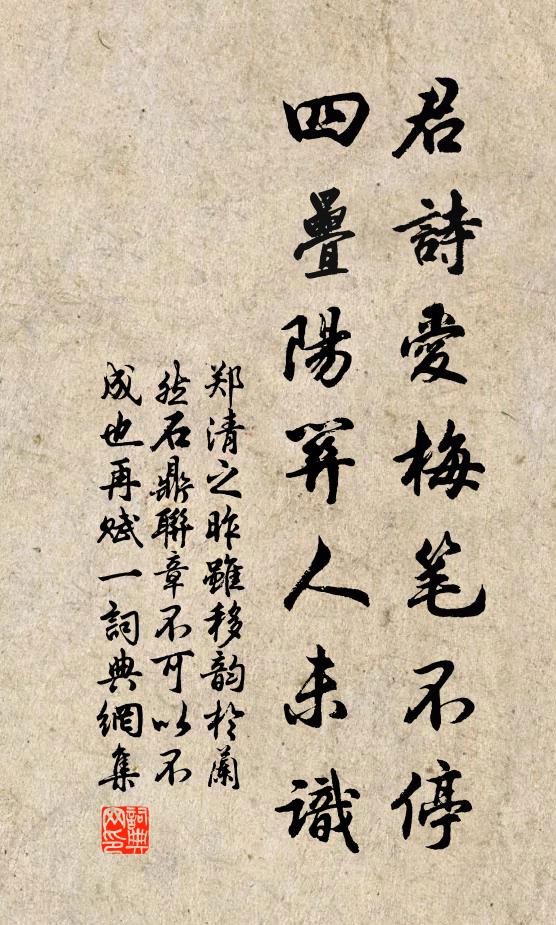 君詩愛梅笔不停
四疊陽関人未識
郑清之昨雖移韵於蘭
然石鼎聯章不可以不
成也再赋一詞典網集
詞典网印